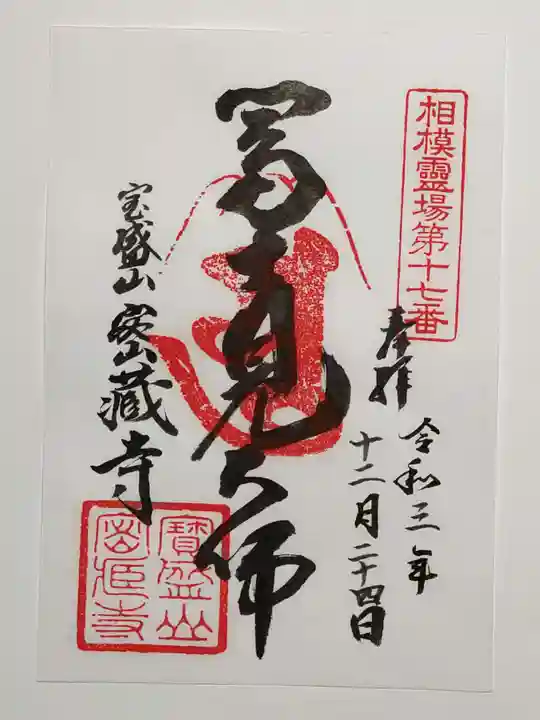 相模靈場第十七番
奉拝
令和三年
十二月二十四日
富士見大師
宝盛山密蔵寺
寶盛山
密蔵寺